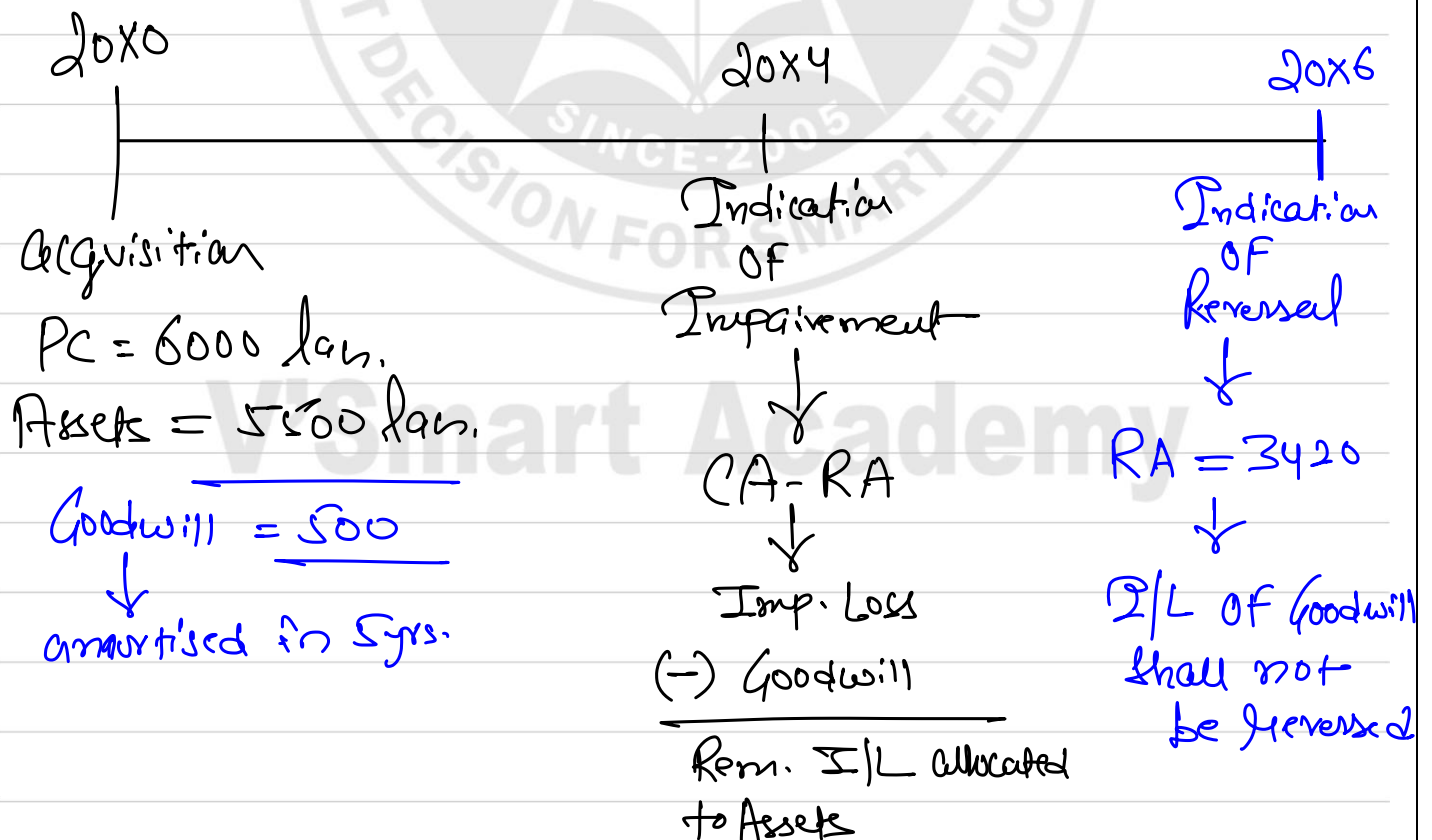 20X0
20X4
20X6
acquisition
PC = 6000 lan.
Assets = 5500 lan.
Goodwill = 500
amortised in 5yrs.
Indication
OF
Impairement
CA - RA
Imp. Loss
(-) Goodwill
Rem. I/L allocated
to Assets
Indication
OF
Reversal
RA = 3420
I/L OF Goodwill
shall not
be reversed
T DECISION FOR SMART EDUC
SINCE-2005
V'Smart Academy